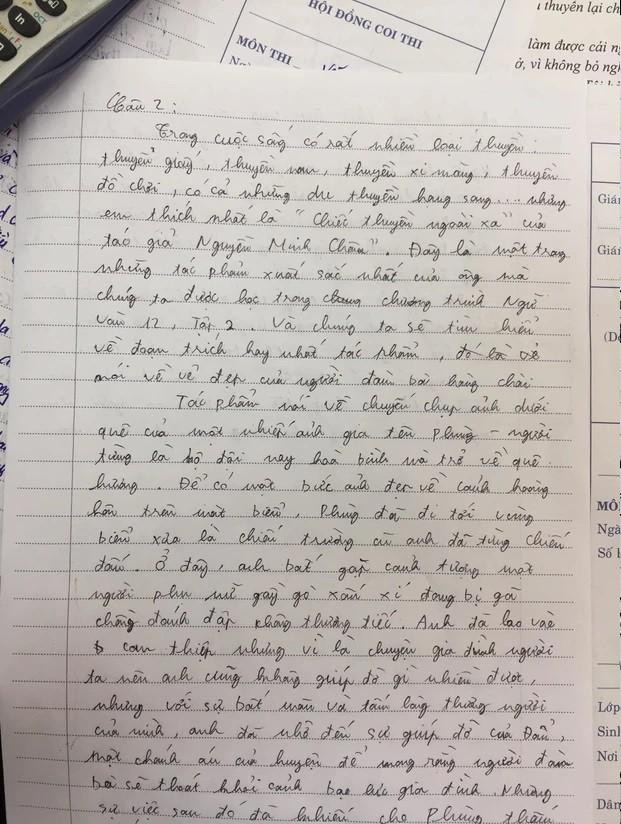 HỘI ĐỒNG COI THI
MÔN THI
thuyền lại ch
làm được cái ng
ở, vì không bỏ ngh
Câu 2 :
Trong cuộc sống có rất nhiều loại thuyền :
thuyền giấy, thuyền nan, thuyền xi măng, thuyền
đồ chơi, có cả những du thuyền hạng sang.... nhưng
em thích nhất là "Chiếc thuyền ngoài xa" của
tác giả Nguyễn Minh Châu". Đây là một trong
những tác phẩm xuất sắc nhất của ông mà
chúng ta được học trong chương trình Ngữ
Văn 12, Tập 2. Và chúng ta sẽ tìm hiểu
về đoạn trích hay nhất tác phẩm, đó là vẻ
nói về vẻ đẹp của người đàn bà hàng chài.
Tác phẩm nói về chuyến chụp ảnh dưới
quê của một nhiếp ảnh gia tên Phùng - người
từng là bộ đội nay hoà bình và trở về quê
hương. Để có một bức ảnh đẹp về cảnh hoàng
hôn trên mặt biển, Phùng đã đi tới vùng
biển xưa là chiến trường cũ anh đã từng chiến
đấu. Ở đây, anh bắt gặp cảnh tượng một
người phụ nữ gầy gò xấu xí đang bị gã
chồng đánh đập không thương tiếc. Anh đã lao vào
can thiệp nhưng vì là chuyện gia đình người
ta nên anh cũng không giúp đỡ gì nhiều được,
nhưng với sự bất mãn và tấm lòng thương người
của mình, anh đã nhờ đến sự giúp đỡ của Đẩu,
một chánh án của huyện để mong rằng người đàn
bà sẽ thoát khỏi cảnh bạo lực gia đình. Nhưng
sự việc sau đó đã khiến cho Phùng thấm
Giá
Giá
MÔ
Ngà
Số b
Lớp
Sinh
Nơi
Dân